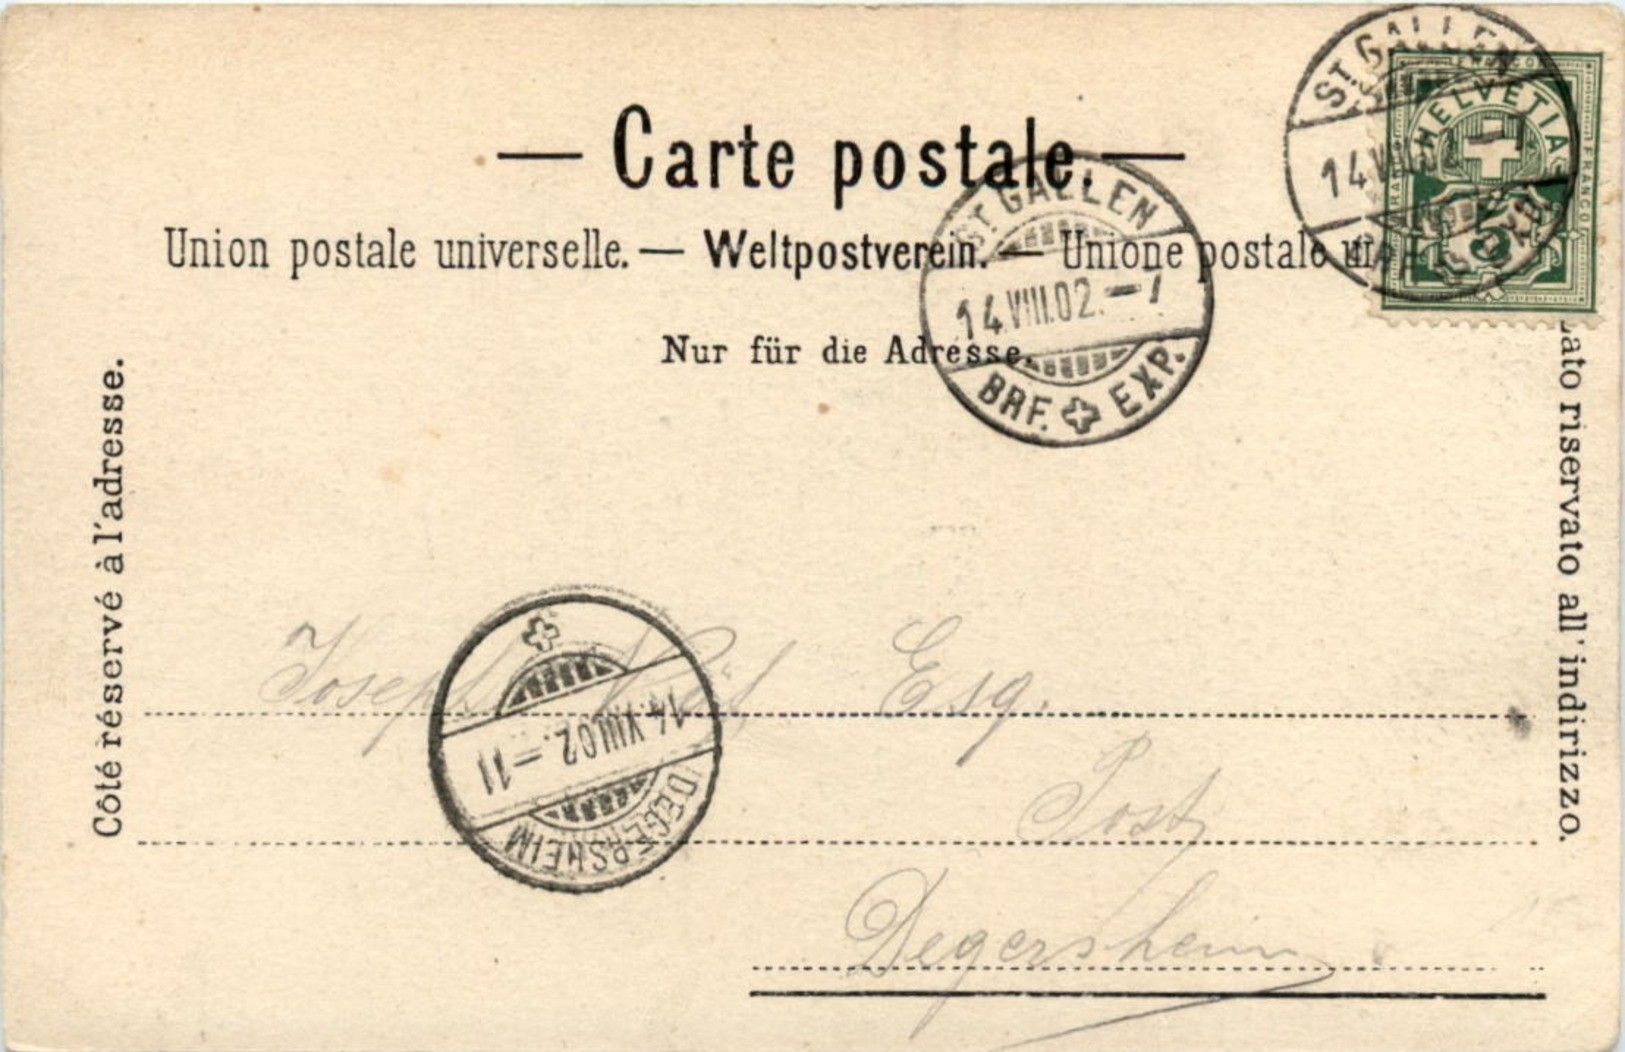 — Carte postale. —
Union postale universelle. — Weltpostverein. — Unione postale
Nur für die Adresse.
Côté réservé à l'adresse.
Lato riservato all' indirizzo.
ST. GALLEN
14.VIII.02.–7
BRF. EXP.
HELVETIA
FRANCO
5
ST. GALLEN
14.VIII.02.–7
BRF. EXP.
14.VIII.02.–11
DEGERSHEIM
Joseph Esq.
Post
Degersheim